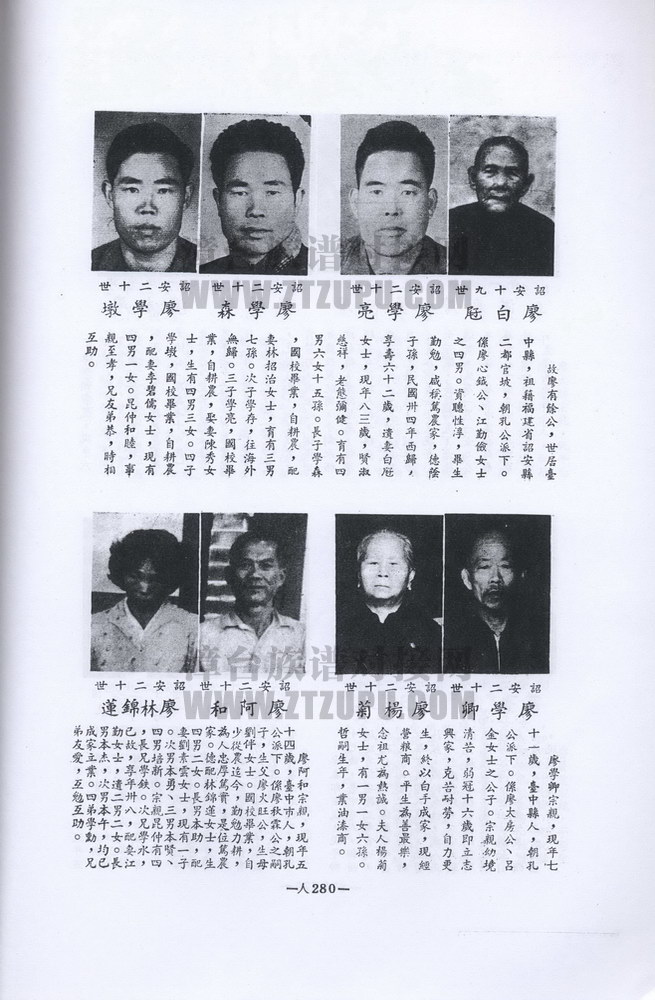 廖白屘
詔安十九世
廖學亮
詔安二十世
廖學森
詔安二十世
廖學墩
詔安二十世
故廖有餘公,世居臺
中縣,祖籍福建省詔安縣
二都官坡,朝孔公派下。
係廖心鉞公、江勤儉女士
之四男。資聰性淳,畢生
勤勉,咸稱篤農家,德蔭
子孫,民國卅四年西歸,
享壽六十二歲,遺妻白屘
女士,現年八三歲,賢淑
慈祥,老態彌健。育有四
男六女十五孫。長子學森
,國校畢業,自耕農,配
妻林招治女士,育有三男
七孫。次子學存,往海外
無歸。三子學亮,國校畢
業,自耕農,娶妻陳秀女
士,生有四男三女。四子
學墩,國校畢業,自耕農
,配妻李碧儒女士,現有
四男一女。昆仲和睦,事
親至孝,兄友弟恭,時相
互助。
廖學卿
詔安二十世
廖楊菊
詔安二十世
廖阿和
詔安二十世
廖林錦蓮
詔安二十世
廖學卿宗親,現年七
十一歲,臺中縣人,朝孔
公派下。係廖大房公、呂
金女士之公子。宗親幼境
清苦,弱冠十六歲即立志
興家,克苦耐勞,自力更
生,終以白手成家,現經
營糧商。平生為善最樂,
念祖尤為熱誠。夫人楊菊
女士,有一男一女六孫。
哲嗣生年,業油漆商。
廖阿和宗親,現年五
十四歲,臺中市人,朝孔
公派下。係廖秋霖公之嗣
子,生父廖火旺公,生母
劉伴女士。國校畢業,自
少從農迄今,勤勉力耕,
為人忠厚篤實,是位篤農
家。德配林錦蓮女士,生
四男二女。長男本助,配
妻劉素雲女士,現有一子
。次男本勇、三男本賢、
四男培新。宗親昆仲有四
,長兄學鉄。次兄學水,
已故,享年卅八,配妻江
勤女士,遺二男二女。長
男本杰,次男本午,均已
成家立業。四弟學勳,兄
弟友愛,互勉互助。
—人280—
漳台族谱对接网
WWW.ZTZUPU.COM
漳台族谱对接网
WWW.ZTZUPU.COM